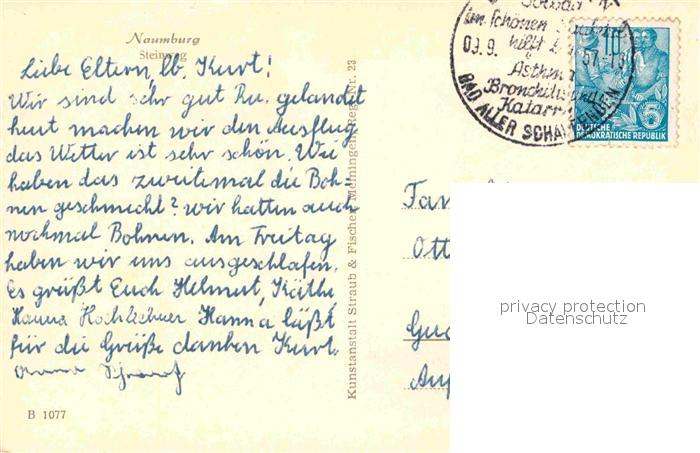 Naumburg
Steinweg
Liebe Eltern, lb. Kurt!
Wir sind sehr gut gelandet
heut machen wir den Ausflug
das Wetter ist sehr schön. Wie
haben das zweitemal die Boh=
nen geschmeckt? wir hatten auch
nochmal Bohnen. Am Freitag
haben wir uns ausgeschlafen.
Es grüßt Euch Helmut, Käthe
Hanna Hanna läßt
für die Grüße danken Kurt.
B 1077
Kunstanstalt Straub & Fischer Meiningen
23
im schönen
hilft
09.9. 57.-18
Asthma
Bronchitis
Katarrh
BAD ALLER SCHAFFENDEN
10
5
DEUTSCHE
DEMOKRATISCHE REPUBLIK
Fam
Ott
privacy protection
Datenschutz